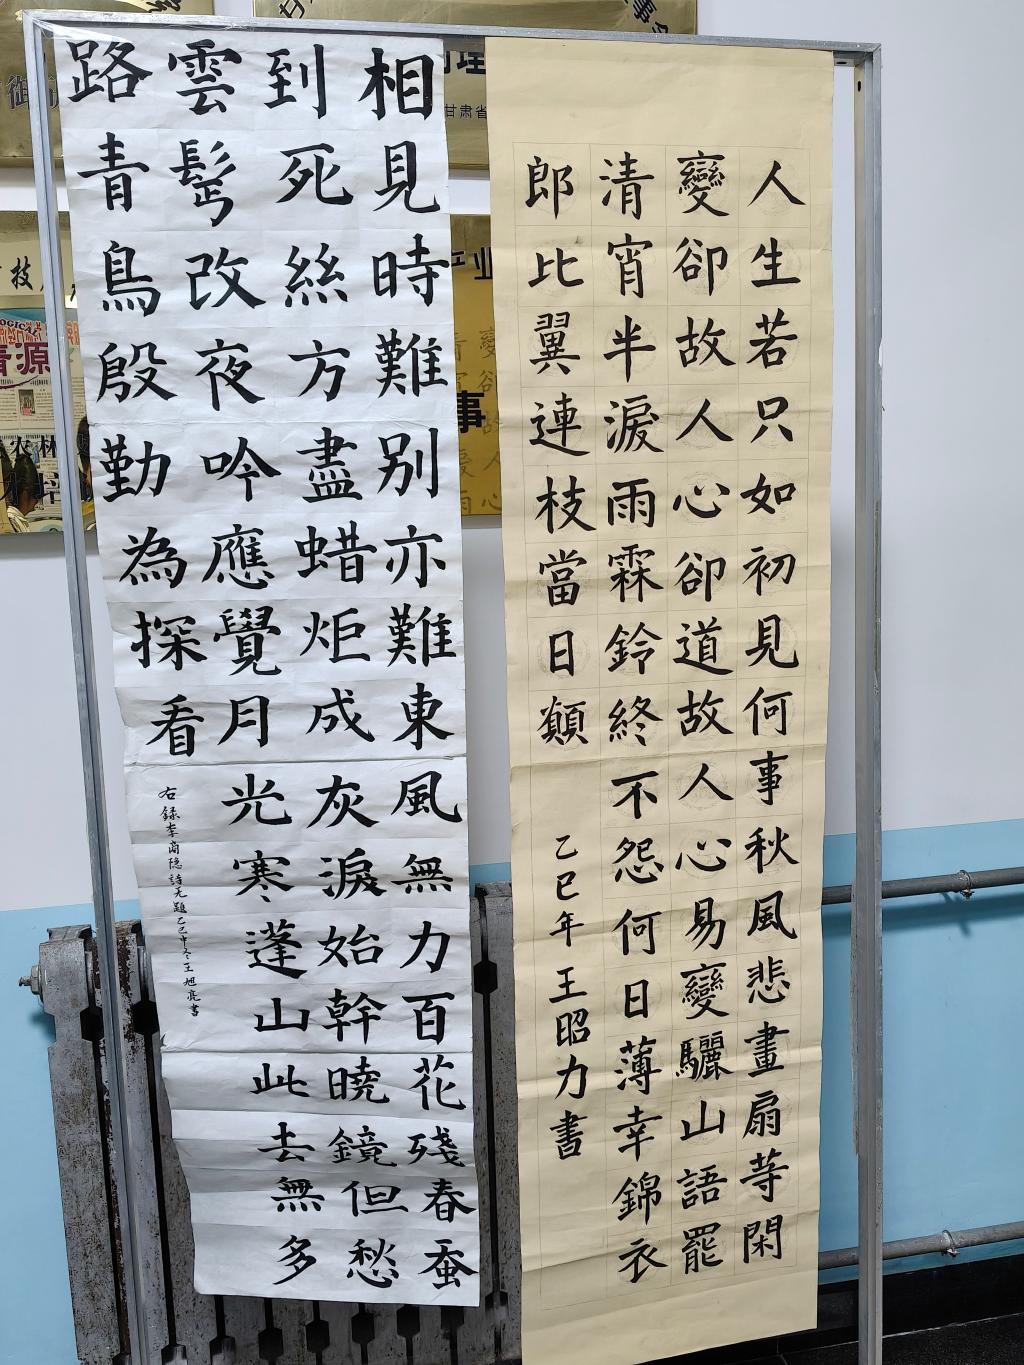 人生若只如初見何事秋風悲畫扇等閑
變卻故人心卻道故人心易變驪山語罷
清宵半淚雨霖鈴終不怨何日薄幸錦衣
郎比翼連枝當日願
乙巳年 王昭力書
相見時難別亦難東風無力百花殘春蚕
到死絲方盡蜡炬成灰淚始幹曉鏡但愁
雲鬢改夜吟應覺月光寒蓬山此去無多
路青鳥殷勤為探看
右録李商隐詩无題乙巳中冬王旭亮書
甘肃省
事
技
农林